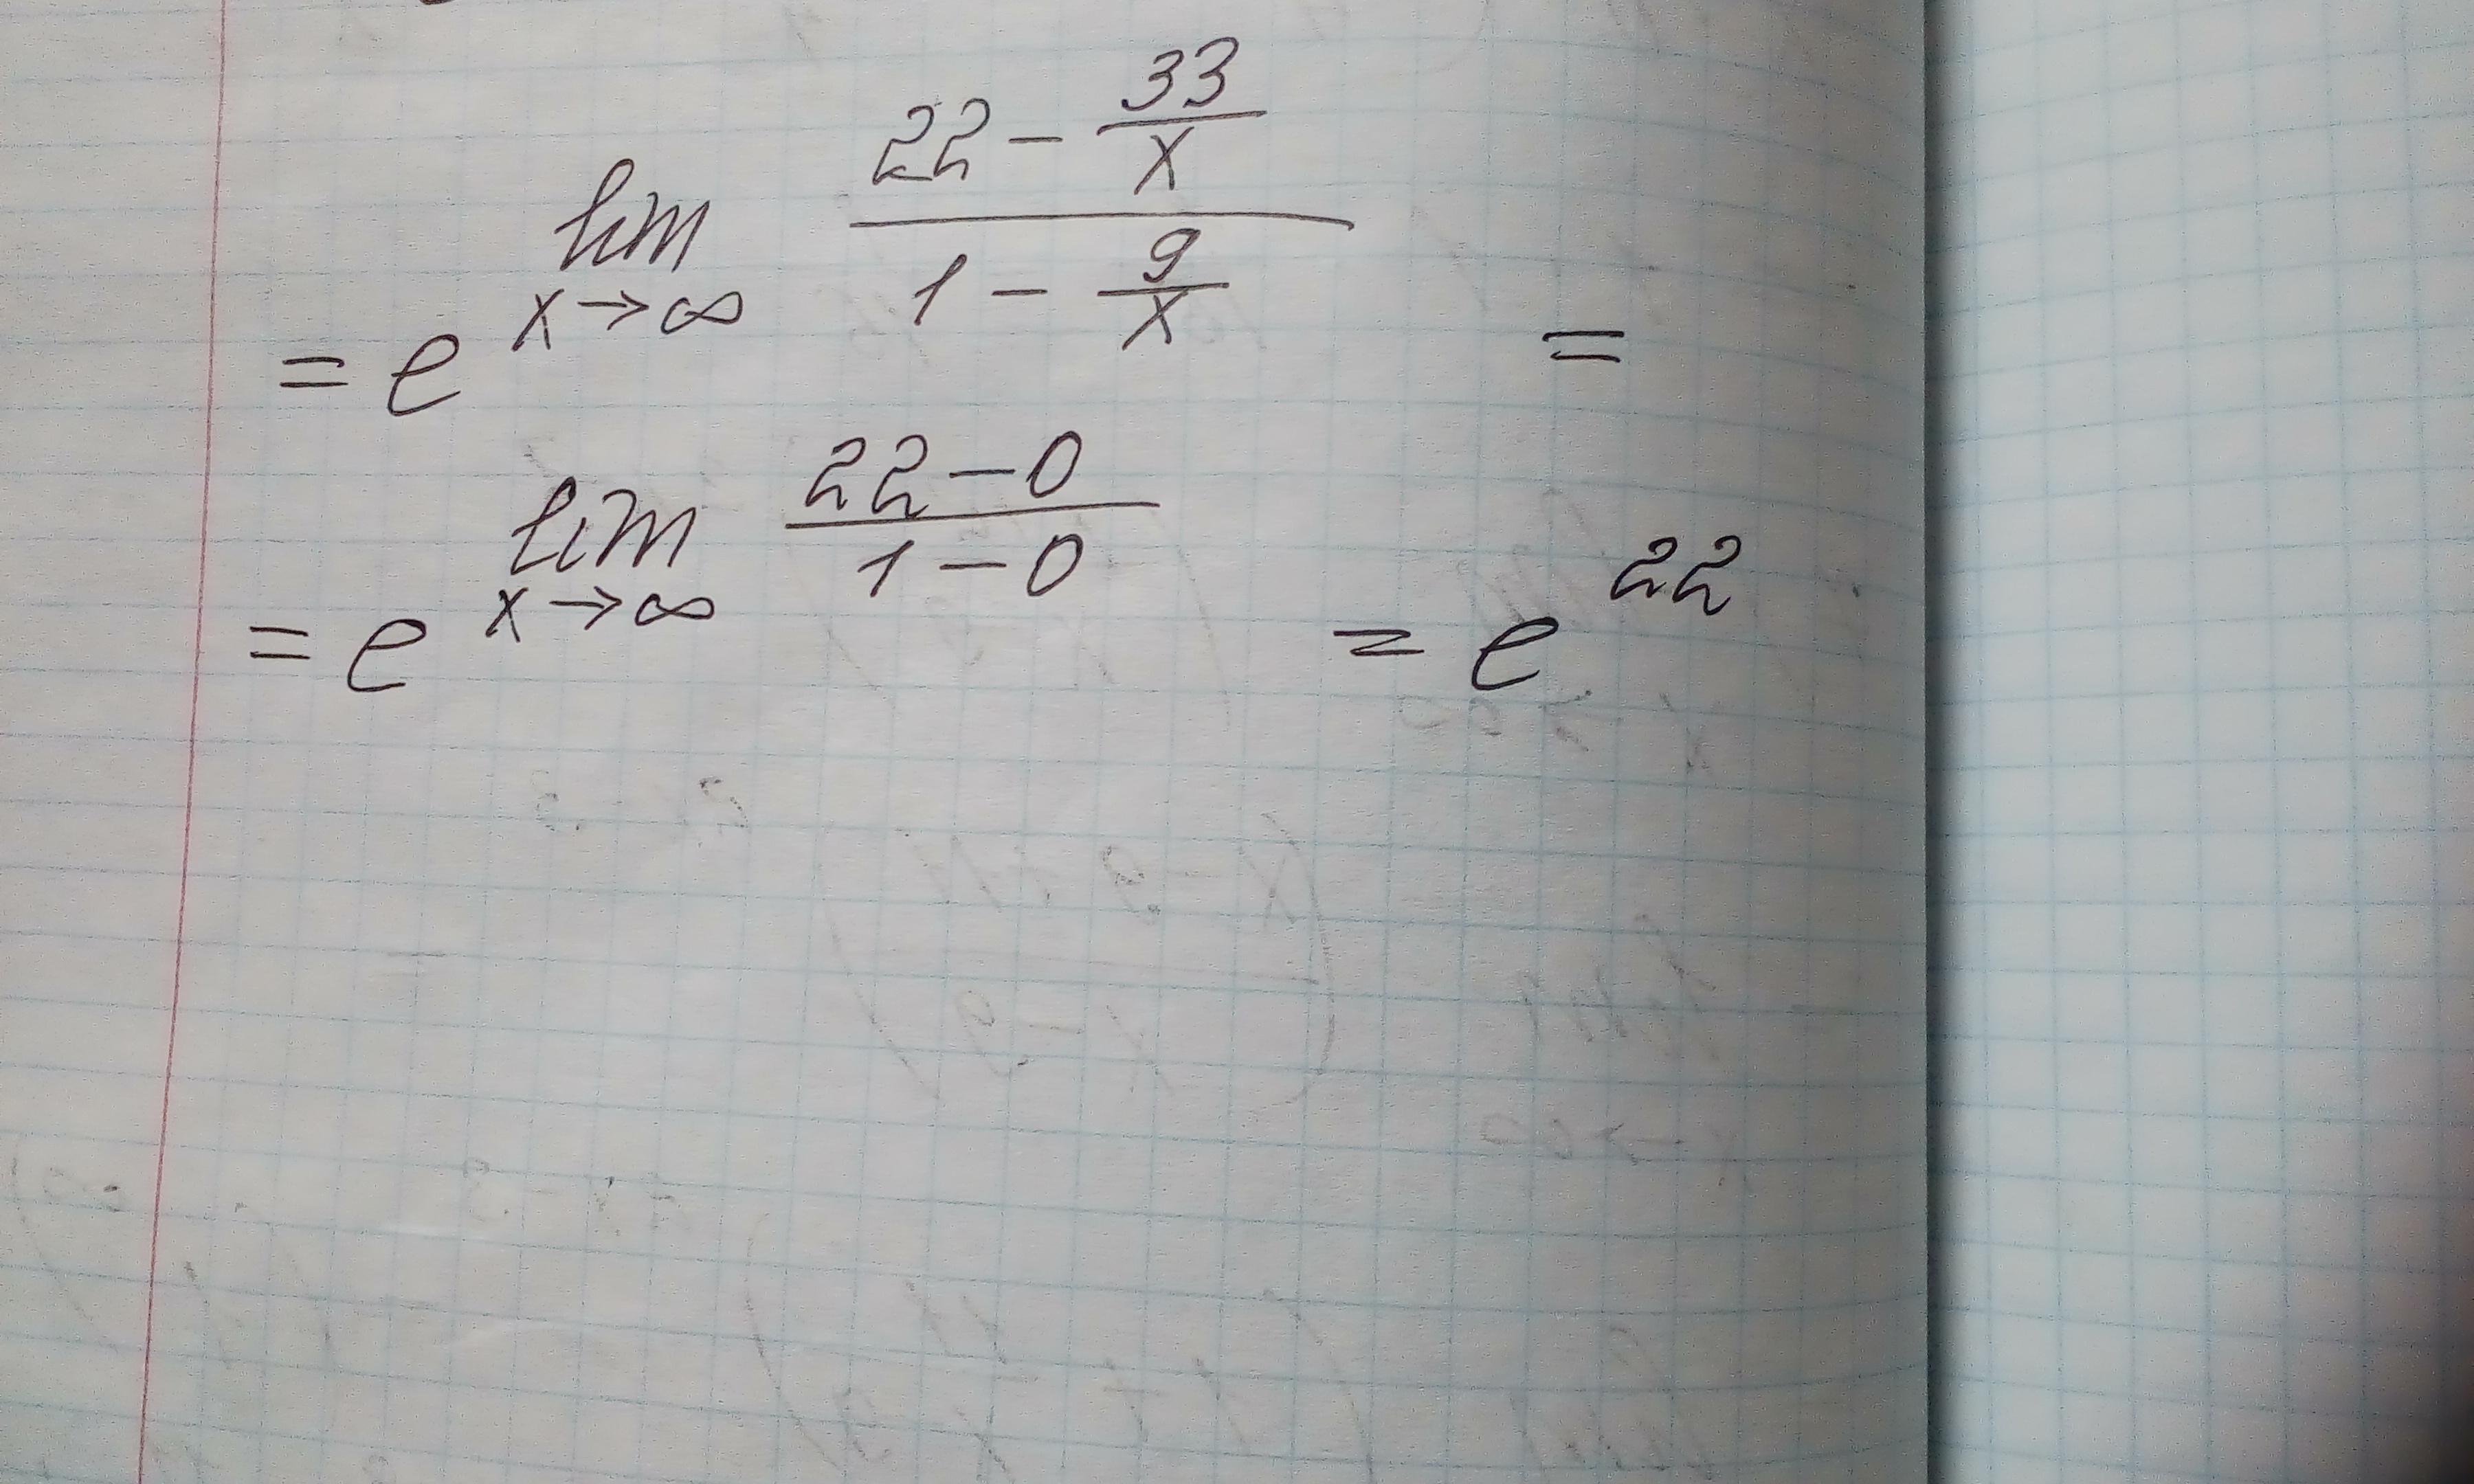 = e^{lim_{x→∞} \frac{22 - \frac{33}{x}}{1 - \frac{9}{x}}} =
= e^{lim_{x→∞} \frac{22 - 0}{1 - 0}} = e^{22}